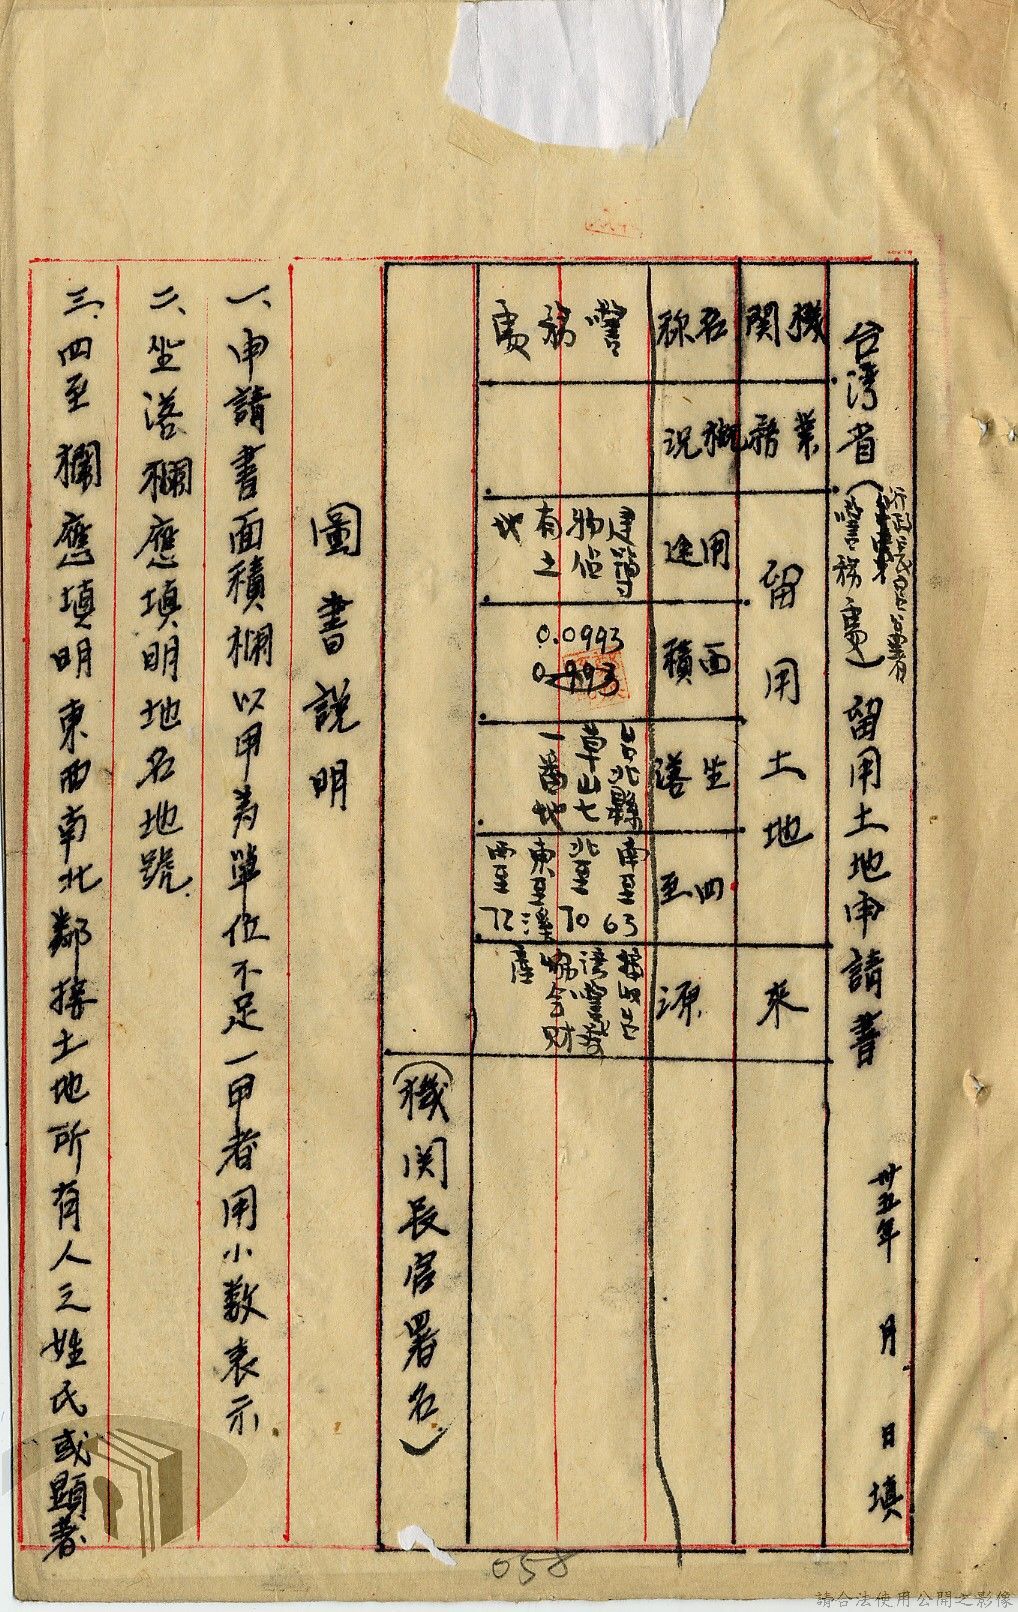 台湾省(行政長官公署警務處)留用土地申請書
卅五年　月　日填
機関
名称
警務處
業務概況
留用土地
用途
建築物佔有土地
面積
0.0993
0.993
坐落
台北縣草山七一番地
四至
南至63
北至70
東至溪
西至72
來源
接收台湾警察協会財產
(機関長官署名)
圖書說明
一、申請書面積欄以甲為單位不足一甲者用小数表示
二、坐落欄應填明地名地號
三、四至欄應填明東西南北鄰接土地所有人之姓氏或顯著
058
請合法使用公開之影像